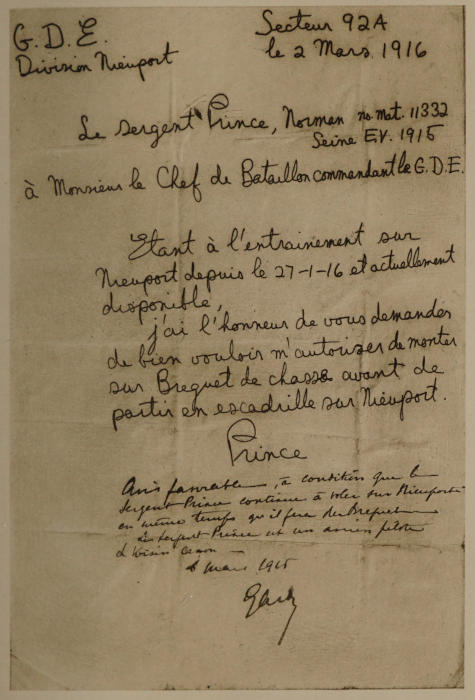 G.D.E.
Division Nieuport
Secteur 92A
le 2 Mars 1916
Le Sergent Prince, Norman no. mat. 11332
Seine E.V. 1915
à Monsieur le Chef de Bataillon commandant le G.D.E.
Etant à l'entrainement sur
Nieuport depuis le 27-1-16 et actuellement
disponible,
j'ai l'honneur de vous demander
de bien vouloir m'autoriser de monter
sur Breguet de chasse avant de
partir en escadrille sur Nieuport.
Prince
Avis favorable, à condition que le
sergent Prince continue à voler sur Nieuport
en même temps qu'il fera du Breguet
Le sergent Prince est un ancien pilote
de Voisin canon
Mars 1916